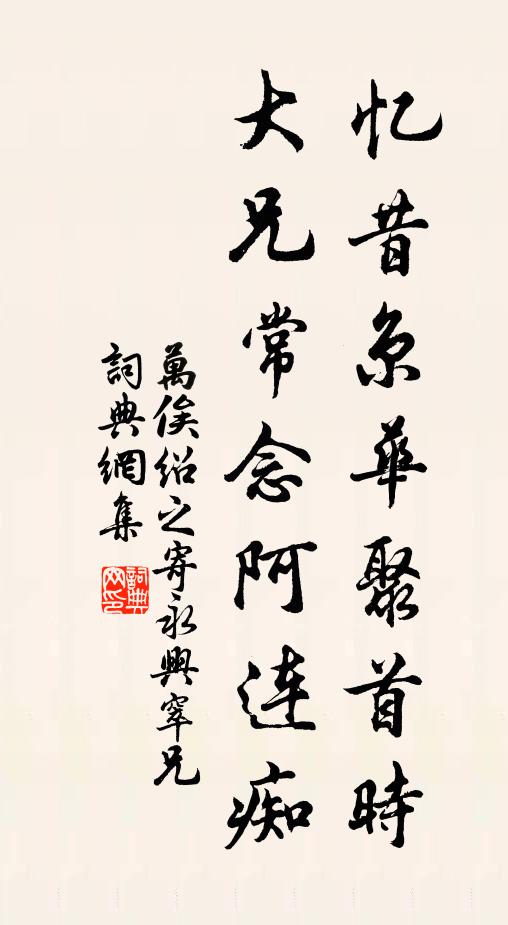 忆昔京華聚首時
大兄常念阿连痴
萬俟绍之寄永興宰兄
詞典網集
詞典
网印